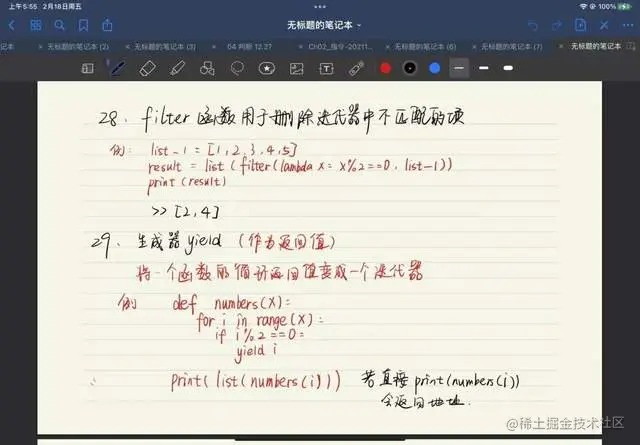 上午5:55 2月18日周五
100%
无标题的笔记本
记本
无标题的笔记本 (2)
无标题的笔记本 (3)
04 判断 12.27
CH02_指令-20211...
无标题的笔记本 (6)
无标题的笔记本 (7)
无标题的笔记本
28、filter 函数用于删除迭代器中不匹配的项
例: list_1 = [1,2,3,4,5]
result = list(filter(lambda x: x%2==0, list-1))
print(result)
>> [2,4]
29、生成器 yield (作为返回值)
将一个函数的循环返回值变成一个迭代器
例 def numbers(x):
for i in range(x):
if i%2==0:
yield i
print(list(numbers(i))) 若直接print(numbers(i))
会返回地址.
@稀土掘金技术社区